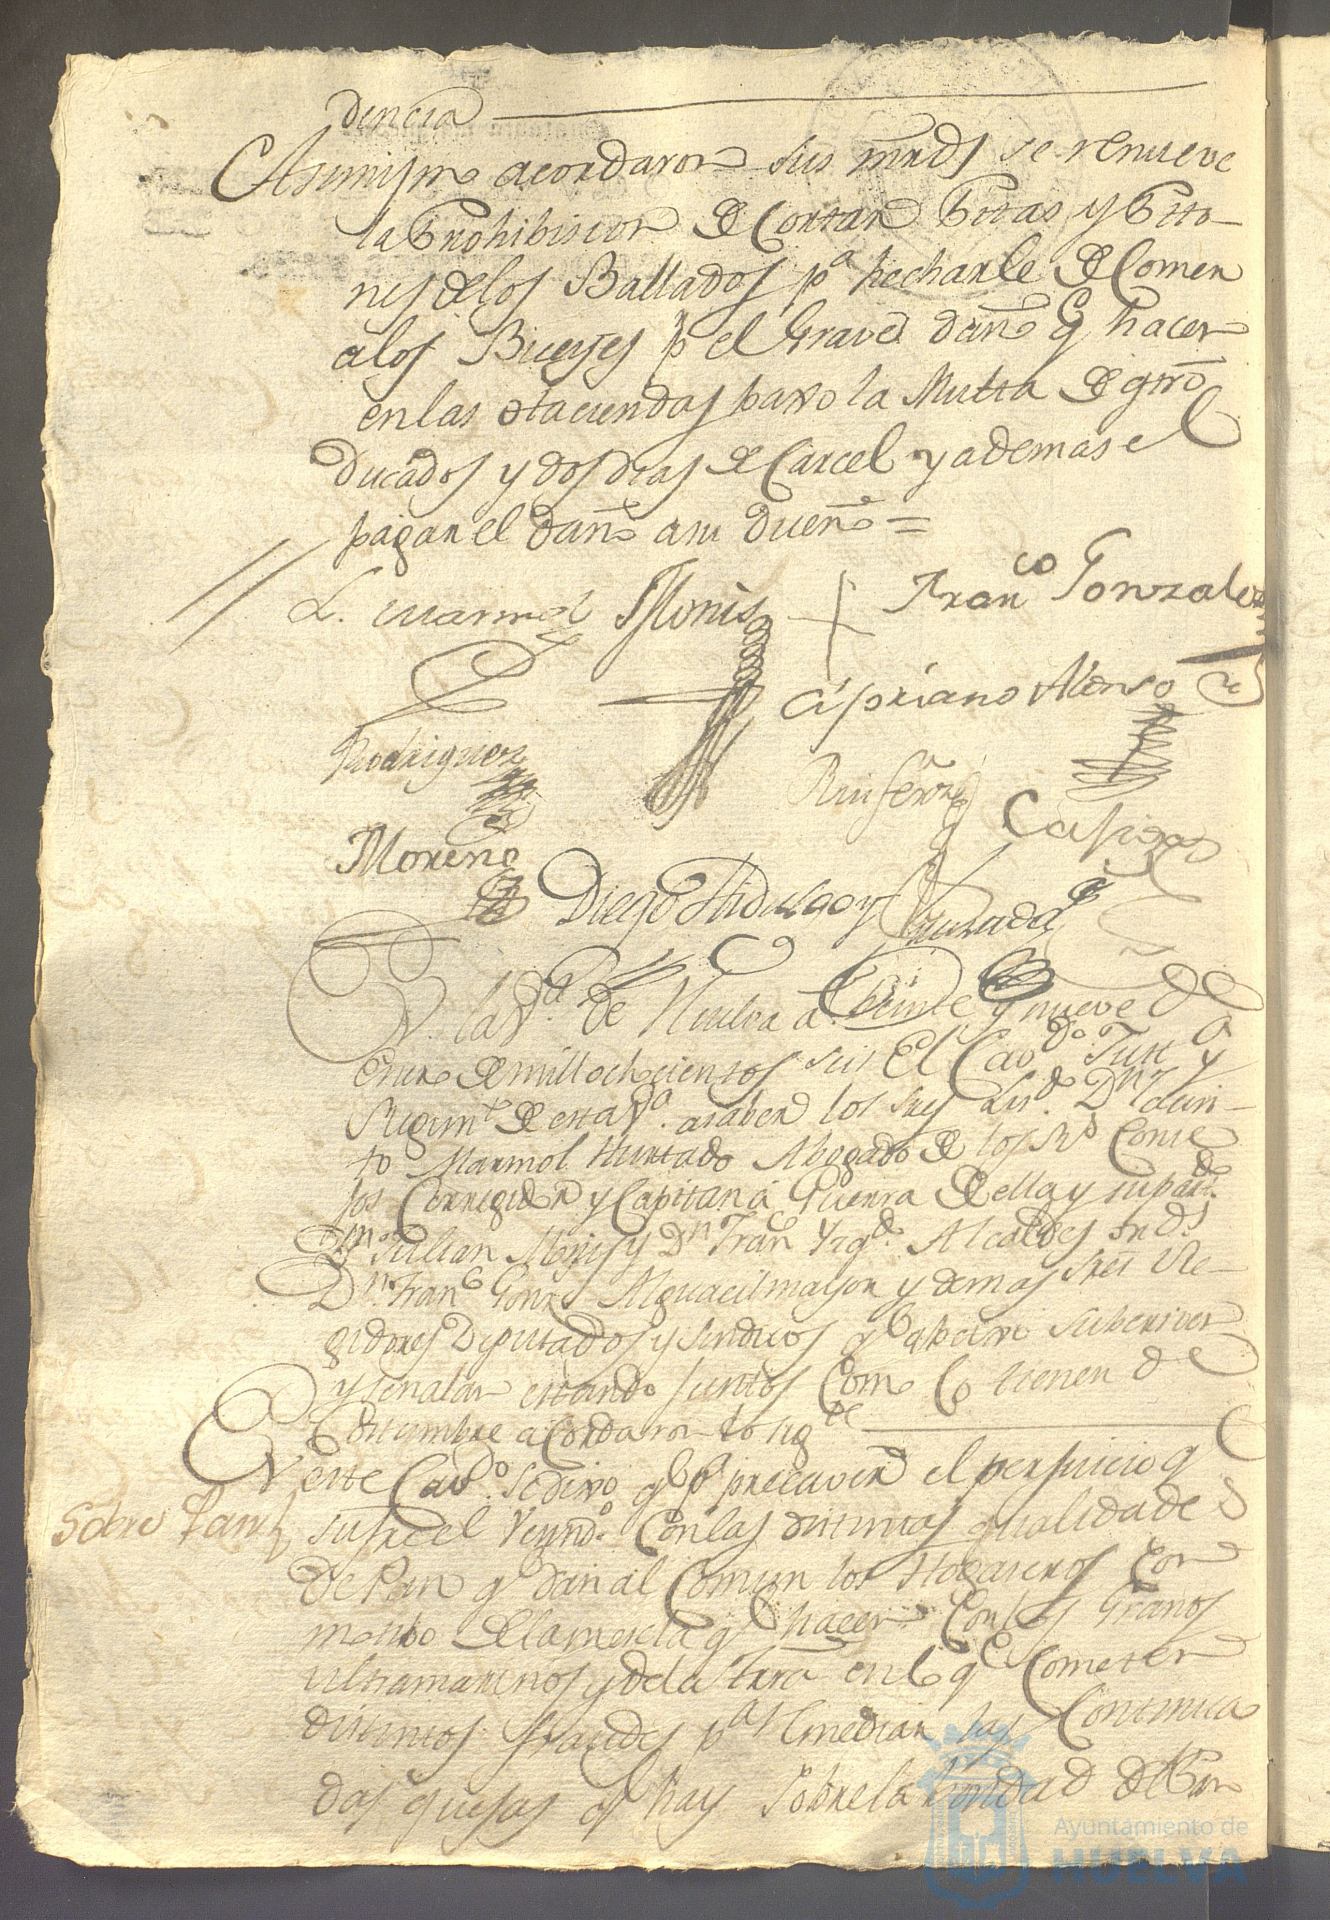 dencia
Asimismo acordaron sus mrds se renueve
la Prohibision de Cortar Pitas y Pito-
nes de los Ballados pa hecharle de Comer
a los Bueyes p el Grave daño q hacen
en las Haciendas baxo la Multa de quatro
Ducados y dos dias de Carcel y ademas el
pagar el daño a su dueño =
L. Marmol Monis + Franco Gonzalez
Cipriano Alonso
Rodriguez
Ruifernz
Casiga
Moreno
Diego Hidalgo y Hurtado
En la Va. de Huelva a Veinte y nueve de
Enero de mill ochocientos seis El Cavdo. Justa y
Regimto de esta Va. a saber los Sres Lizdo. Dn Jacin-
to Marmol Hurtado Abogado de los Rs Conse
jos Corregidor y Capitan á Guerra de ella y su partdo
Dn Julian Monis y Dn Franco Yzqdo Alcaldes Ords
Dn. Franco Gonz Alguacil mayor y demas Sres Re-
gidores Diputados y Sindicos q abajo subcriven
y señalan estando Juntos Como lo tienen de
Costumbre acordaron lo sigte
En este Cavdo. se dixo q pa precaver el perjuicio q
Sobre Pan
sufre el Veyndo. Con las distintas qualidades
de Pan q dan al Comun los Hogaseros Con
motibo de la mescla q hacen Con los Granos
ultramarinos y de la tierra en lo qe Cometen
distintos fraudes pa Remediar las Continua
das quejas q hay sobre la bondad del Pan
Ayuntamiento de
HUELVA